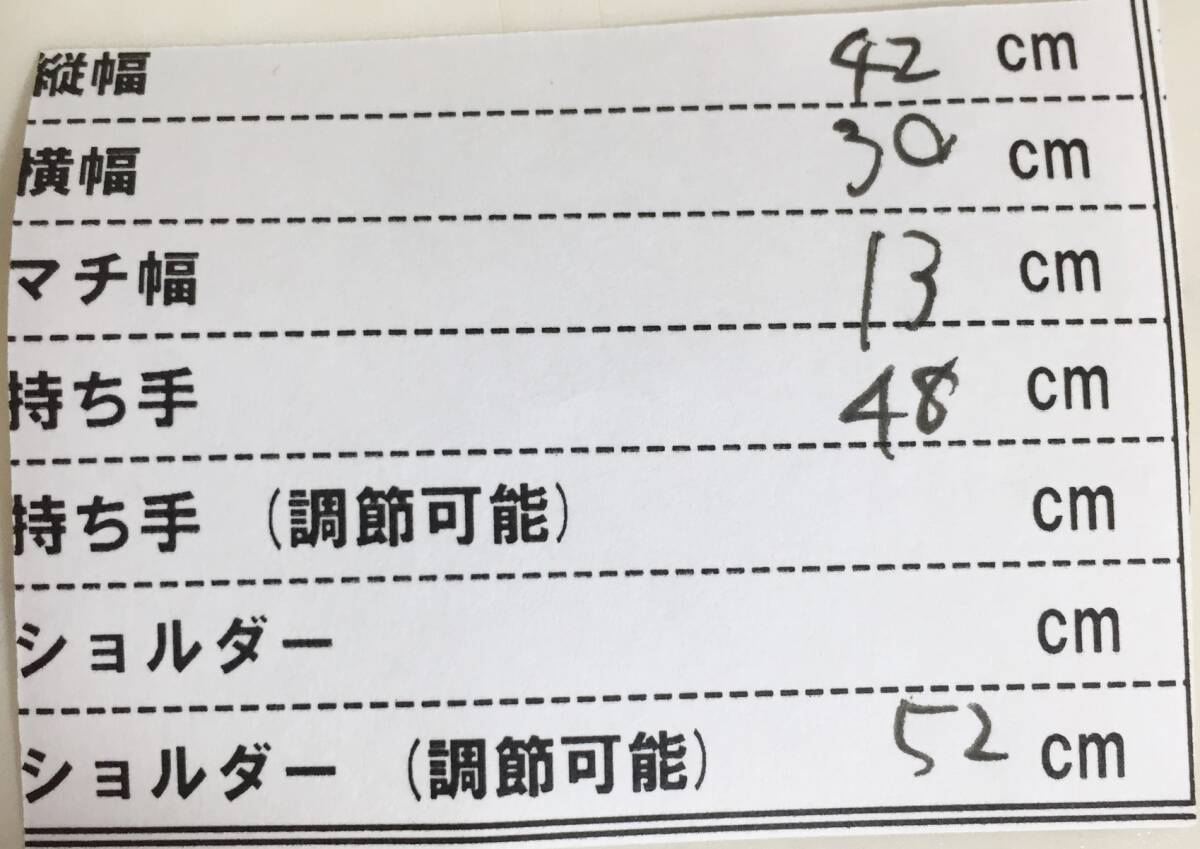 縦幅 42 cm
横幅 30 cm
マチ幅 13 cm
持ち手 48 cm
持ち手 (調節可能) cm
ショルダー cm
ショルダー (調節可能) 52 cm